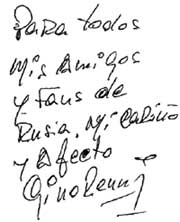 para todos
Mis Amigos
y Fans de
Rusia. Mi Cariño
y Afecto
Gino Renni